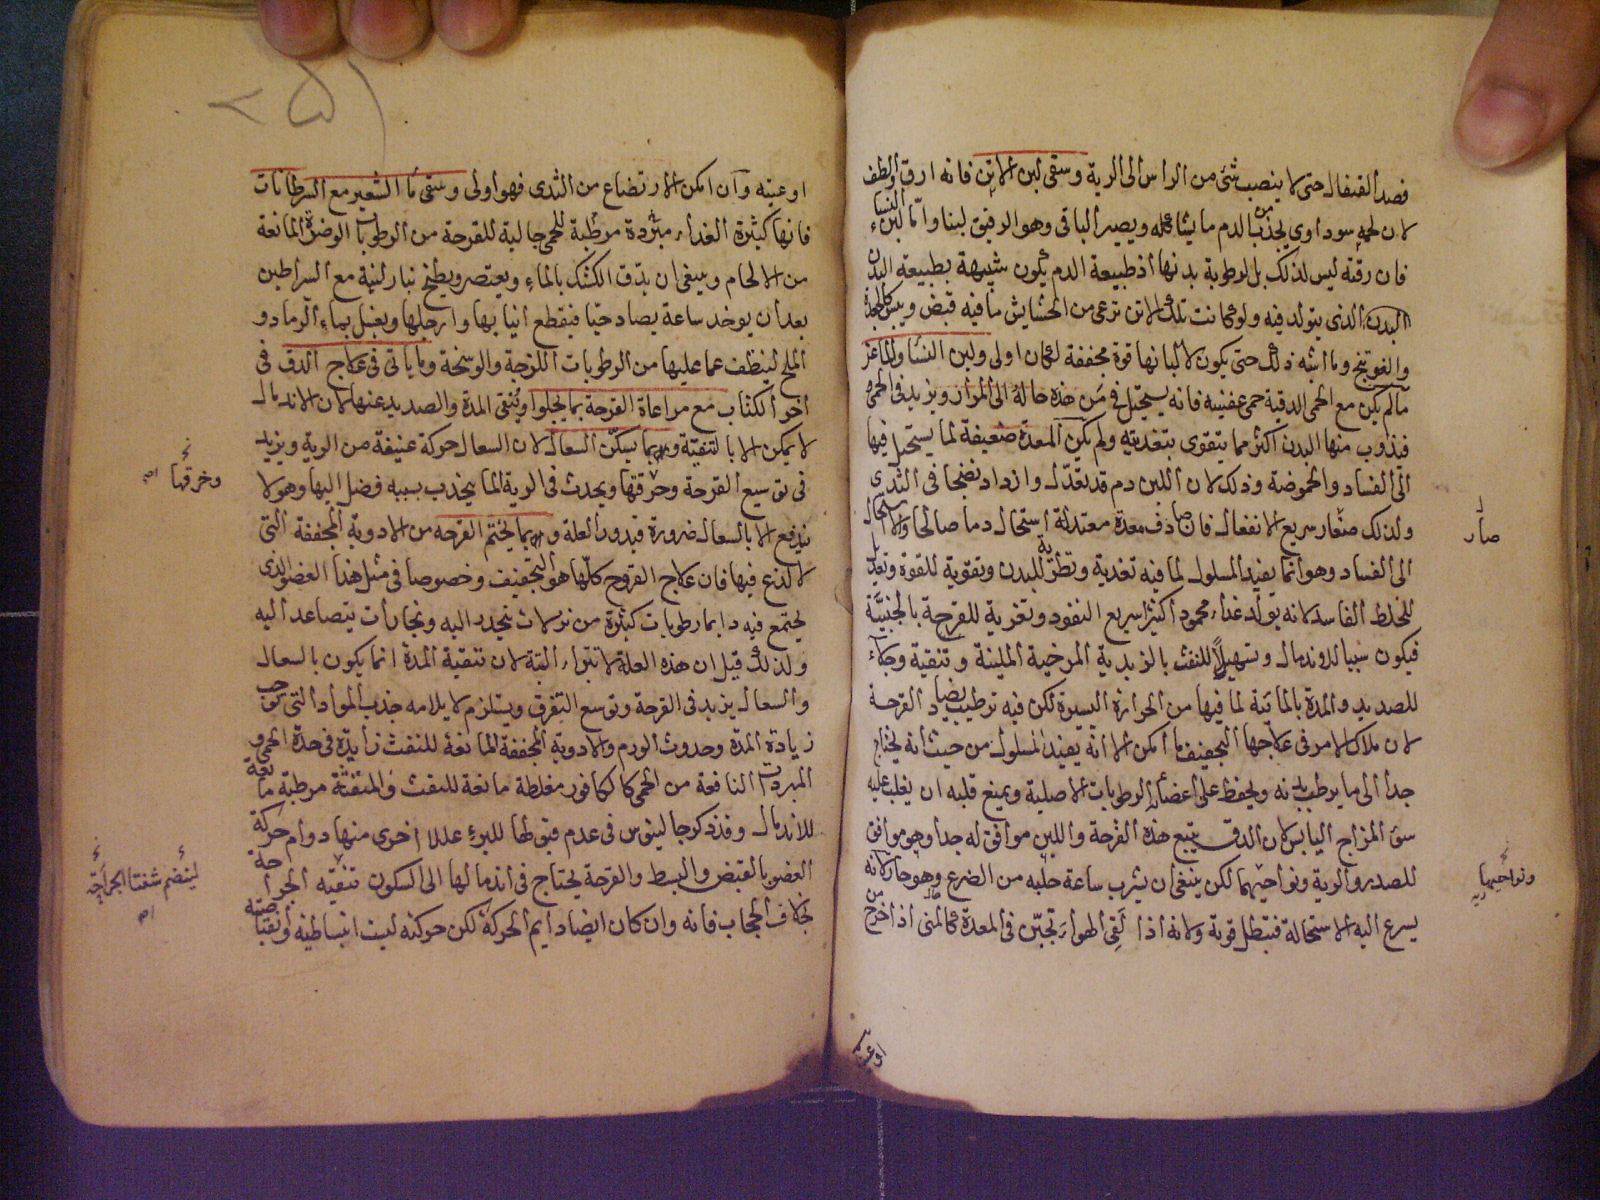 فصد القيفال حتى لا ينصب شئ من الراس الى الرية وسقى لبن الاتن فانه ارق والطف
لان لحمه سوداوى يجذب من الدم ما يشاكله ويصير الباقى وهو الرقيق لبنا واما لبن النساء
فان رقته ليس لذلك بل لرطوبة بدنها اذ طبيعة الدم يكون شبيهة بطبيعة البدن
البدن الذى يتولد فيه ولو كانت تلك الاتن ترعى من الحشايش ما فيه قبض ويبس كالجعدة
والفوتنج وما اشبه ذلك حتى يكون لالبانها قوة مجففة لكان اولى ولبن النساء والماعز
ما لم يكن مع الحمى الدقية حمى عفنية فانه يستحيل فى من هذه حاله الى المرار ويزيد فى الحمى
فيذوب منها البدن اكثر مما يتقوى بتغذيته ولم يكن المعدة ضعيفة لما يستحيل فيها
الى الفساد والحموضة وذلك لان اللبن دم قد تعدل وازداد نضجا فى الثدى
ولذلك صار سريع الانفعال فان صادف معدة معتدلة استحال دما صالحا والا استحال
الى الفساد وهو انما يفيد المسلول لما فيه تغذية وترطيب للبدن وتقوية للقوة وتعديل
للخلط الفاسد لانه يولد غذاء محمود اكثيرا سريع النفوذ وتغرية للقرحة بالجبنية
فيكون سببا للاندمال وتسهيلا للنفث بالزبدية المرخية الملينة وتنقية وجلاء
للصديد والمدة بالمائية لما فيها من الحرارة اليسيرة لكن فيه ترطيب يضاد القرحة
لان ملاك الامر فى علاجها التجفيف ما امكن الا انه يفيد المسلول من حيث انه يحتاج
جدا الى ما يرطب بدنه ويحفظ على اعضائه الرطوبات الاصلية ويمنع قلبه ان يغلب عليه
سوء المزاج اليابس لان الدق يتبع هذه القرحة واللبن موافق له جدا وهو موافق
للصدر والرية ونواحيهما لكن ينبغى ان يشرب ساعة حلبه من الضرع وهو حار لانه
يسرع اليه الاستحالة فتبطل قوته ولانه اذا لقى الهواء تجبن فى المعدة كالمنى اذا خرج من
صار
ونواحيهما
اوعيته
اوعيته وان امكن الارتضاع من الثدى فهو اولى وسقى ماء الشعير مع السرطانات
فانها كثيرة الغذاء مبردة مرطبة للحمى جالية للقرحة من الرطوبات الوضرة المانعة
من الالحام وينبغى ان يدق الكشك بالماء ويعتصر ويطبخ بنار لينة مع السراطين
بعد ان يوخد ساعة يصاد حيا فيقطع انيابها وارجلها ويغسل بماء الرماد و
الملح لينظف عما عليها من الرطوبات اللزجة والوسخة وما ياتى فى علاج الدق فى
اخر الكتاب مع مراعاة القرحة بما يجلوا وينقى المدة والصديد عنها لان الاندمال
لا يمكن الا بالتنقية وبما يسكن السعال لان السعال حركة عنيفة من الرية ويزيد
فى توسيع القرحة وخرقها ويحدث فى الرية الما يجذب بسببه فضل اليها وهو لا
يندفع الا بالسعال ضرورة فيدور العلة وبما يختم القرحه من الادوية المجففة التى
لا لذع فيها فان علاج القروح كلها هو التجفيف وخصوصا فى مثل هذا العضو الذى
يجتمع فيه دايما رطوبات كثيرة من نزلات ينحدر اليه وبخارات يتصاعد اليه
ولذلك قيل ان هذه العلة لا تبراء البتة لان تنقية المدة انما يكون بالسعال
والسعال يزيد فى القرحة وتوسع التفرق ويستلزم لايلامه جذب المواد التى توجب
زيادة المدة وحدوث الورم والادوية المجففة المانعة للنفث زايدة فى حدة الحمى و
المبردات النافعة من الحمى كالكافور مغلظة مانعة للنفث والمنفثة مرطبة مانعة
للاندمال وقد ذكر جالينوس فى عدم قبولها للبرء عللا اخرى منها دوام حركة
العضو بالقبض والبسط والقرحة يحتاج فى اندمالها الى السكون تنقيه الجراحة
بخلاف الحجاب فانه وان كان ايضا دايم الحركة لكن حركته ليست انبساطية وانقباضية
وخرقها
لينضم شفتا الجراحة
٢٥١